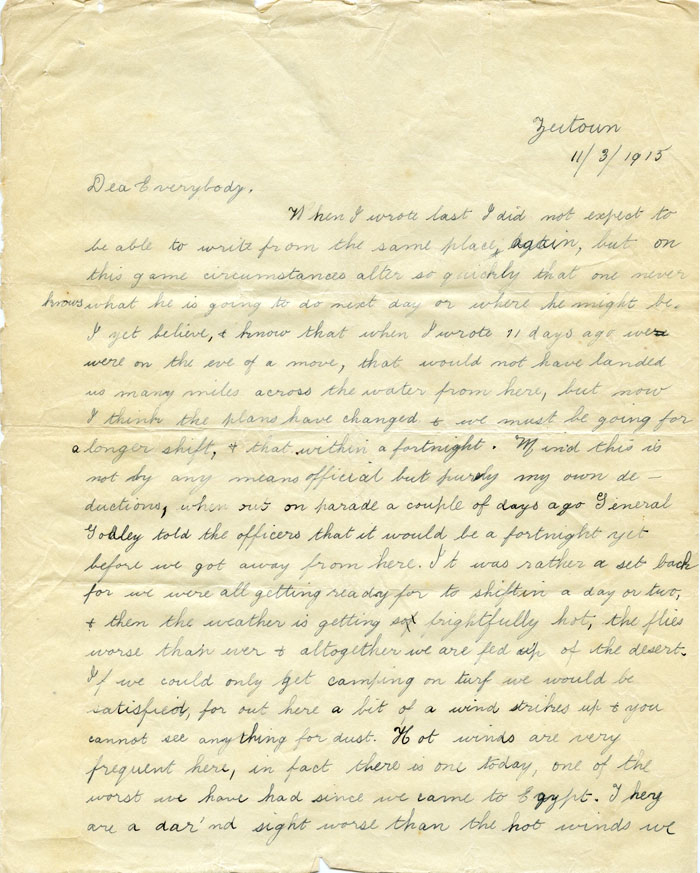 Zeitoun
11/3/1915
Dea Everybody.
When I wrote last I did not expect to
be able to write from the same place, again, but on
this game circumstances alter so quickly that one never
knows what he is going to do next day or where he might be.
I yet believe, & know that when I wrote 11 days ago we
were on the eve of a move, that would not have landed
us many miles across the water from here, but now
I think the plans have changed & we must be going for
a longer shift, & that within a fortnight. Mind this is
not by any means official but purely my own de-
ductions, when out on parade a couple of days ago General
Godley told the officers that it would be a fortnight yet
before we got away from here. It was rather a set back
for we were all getting ready for to shift in a day or two,
& then the weather is getting so frightfully hot, the flies
worse than ever & altogether we are fed up of the desert.
If we could only get camping on turf we would be
satisfied, for out here a bit of a wind strikes up & you
cannot see anything for dust. Hot winds are very
frequent here, in fact there is one today, one of the
worst we have had since we came to Egypt. They
are a dar'nd sight worse than the hot winds we